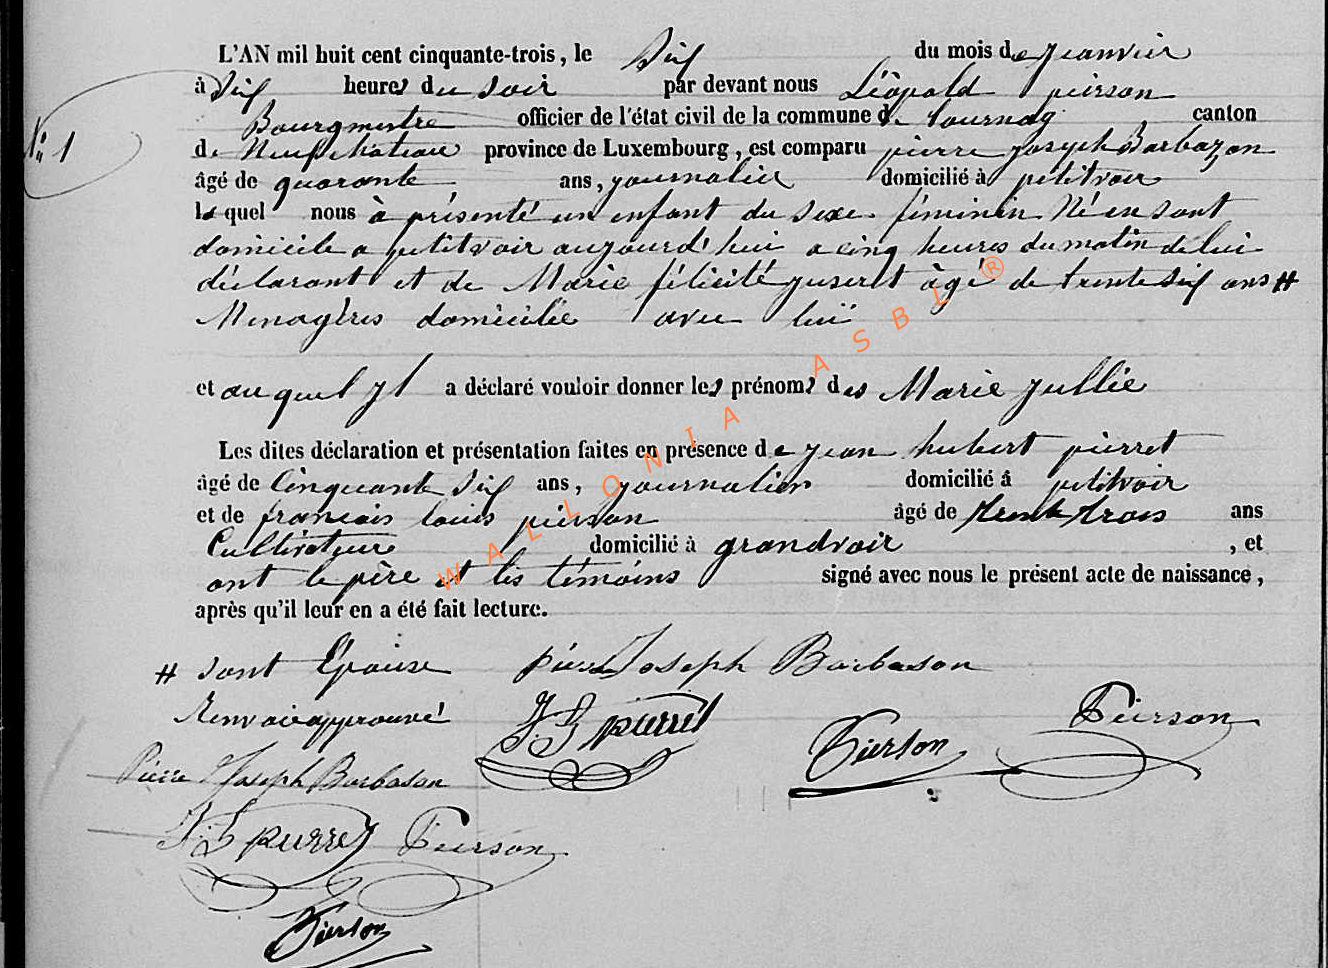 L'AN mil huit cent cinquante-trois, le Six du mois de Janvier
à Six heures du soir par devant nous Léopold pierson
N° 1
Bourgmestre officier de l'état civil de la commune de tournay canton
de Neufchateau province de Luxembourg, est comparu pierre Joseph Barbazon
âgé de quarante ans, journalier domicilié à petitvoir
lequel nous à présenté un enfant du sexe féminin Né en sont
domicile a petitvoir aujourd'hui a cinq heures du matin de lui
déclarant et de Marie félicité juseret âgé de trente Six ans #
Menagères domiciliée avec lui
et auquel jl a déclaré vouloir donner les prénoms des Marie jullie
Les dites déclaration et présentation faites en présence de jean hubert pierret
âgé de Cinquante Six ans, journalier domicilié à petitvoir
et de francois louis pierson âgé de trente trois ans
Cultivateur domicilié à grandvoir , et
ont le père et les témoins signé avec nous le présent acte de naissance,
après qu'il leur en a été fait lecture.
# sont Épouse Pierre Joseph Barbason
Renvoie approuvé J. H pierret Pierson Pierson
Pierre Joseph Barbason
J. H pierret Pierson
Pierson
WALLONIA ASBL ®